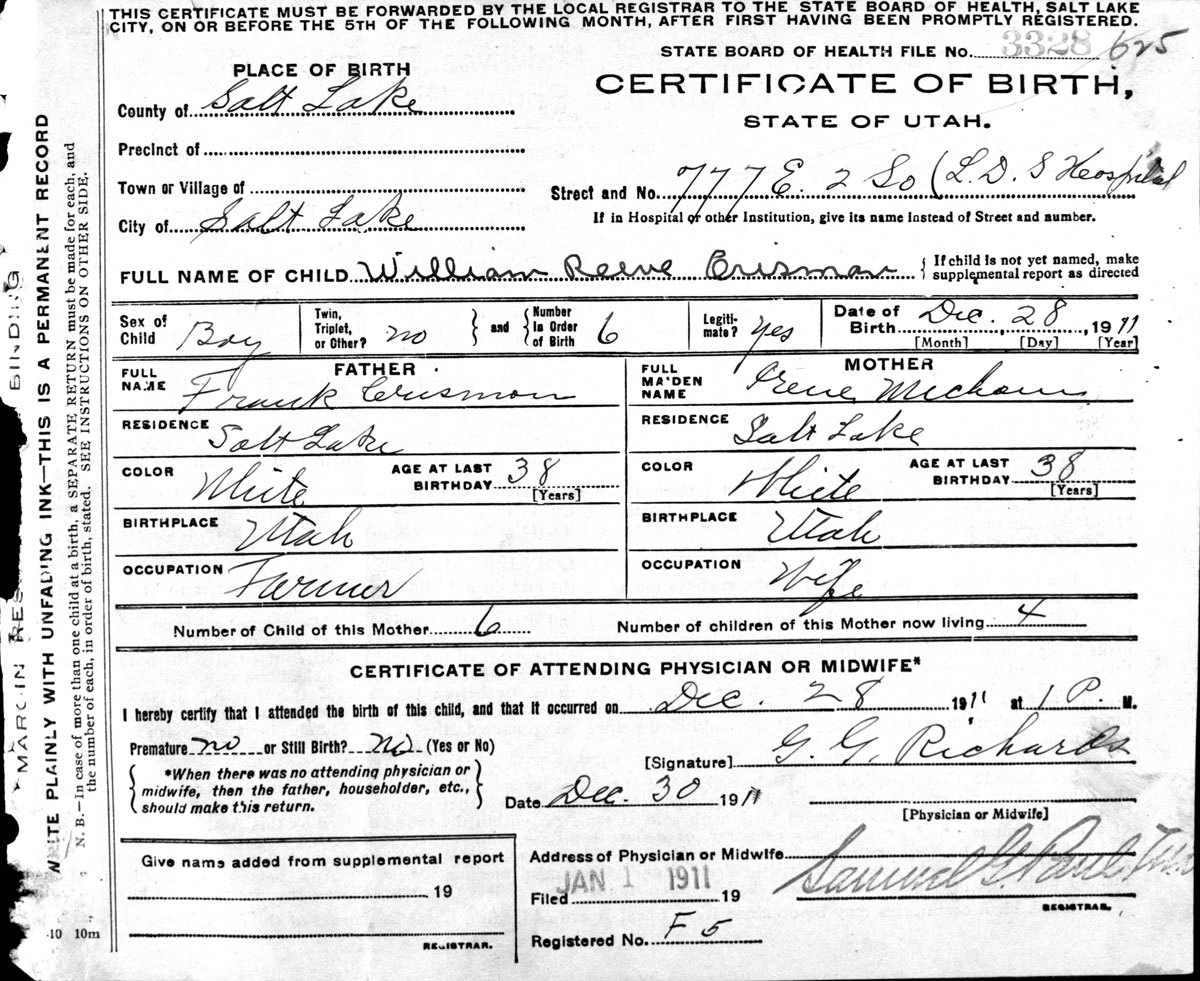 THIS CERTIFICATE MUST BE FORWARDED BY THE LOCAL REGISTRAR TO THE STATE BOARD OF HEALTH, SALT LAKE
CITY, ON OR BEFORE THE 5TH OF THE FOLLOWING MONTH, AFTER FIRST HAVING BEEN PROMPTLY REGISTERED.
STATE BOARD OF HEALTH FILE No. 3328 625
PLACE OF BIRTH
CERTIFICATE OF BIRTH,
STATE OF UTAH.
County of Salt Lake
Precinct of
Town or Village of
Street and No. 777 E. 2 So (L.D.S Hospital
City of Salt Lake
If in Hospital or other Institution, give its name instead of Street and number.
FULL NAME OF CHILD William Reeve Crisman { If child is not yet named, make
supplemental report as directed
Sex of Child Boy
Twin, Triplet, or Other? no } and { Number In Order of Birth 6
Legiti-mate? yes
Date of Birth Dec. 28, 1911
[Month] [Day] [Year]
FATHER
FULL NAME Frank Crismon
RESIDENCE Salt Lake
COLOR White AGE AT LAST BIRTHDAY 38 [Years]
BIRTHPLACE Utah
OCCUPATION Farmer
MOTHER
FULL MAIDEN NAME Irene
RESIDENCE Salt Lake
COLOR White AGE AT LAST BIRTHDAY 38 [Years]
BIRTHPLACE Utah
OCCUPATION Wife
Number of Child of this Mother 6 Number of children of this Mother now living 4
CERTIFICATE OF ATTENDING PHYSICIAN OR MIDWIFE*
I hereby certify that I attended the birth of this child, and that it occurred on Dec. 28 1911 at 1 P. M.
Premature no or Still Birth? no (Yes or No)
[Signature] G. G. Richards
{ *When there was no attending physician or
midwife, then the father, householder, etc.,
should make this return. }
Date Dec. 30 1911
[Physician or Midwife]
Give name added from supplemental report
19
REGISTRAR.
Address of Physician or Midwife
Filed JAN 1 1911 19
Samuel G. Paul
REGISTRAR.
Registered No. F 5
-10 10m
MARGIN RES BINDING
WRITE PLAINLY WITH UNFADING INK—THIS IS A PERMANENT RECORD
N. B.—In case of more than one child at a birth, a SEPARATE RETURN must be made for each, and
the number of each, in order of birth, stated. SEE INSTRUCTIONS ON OTHER SIDE.